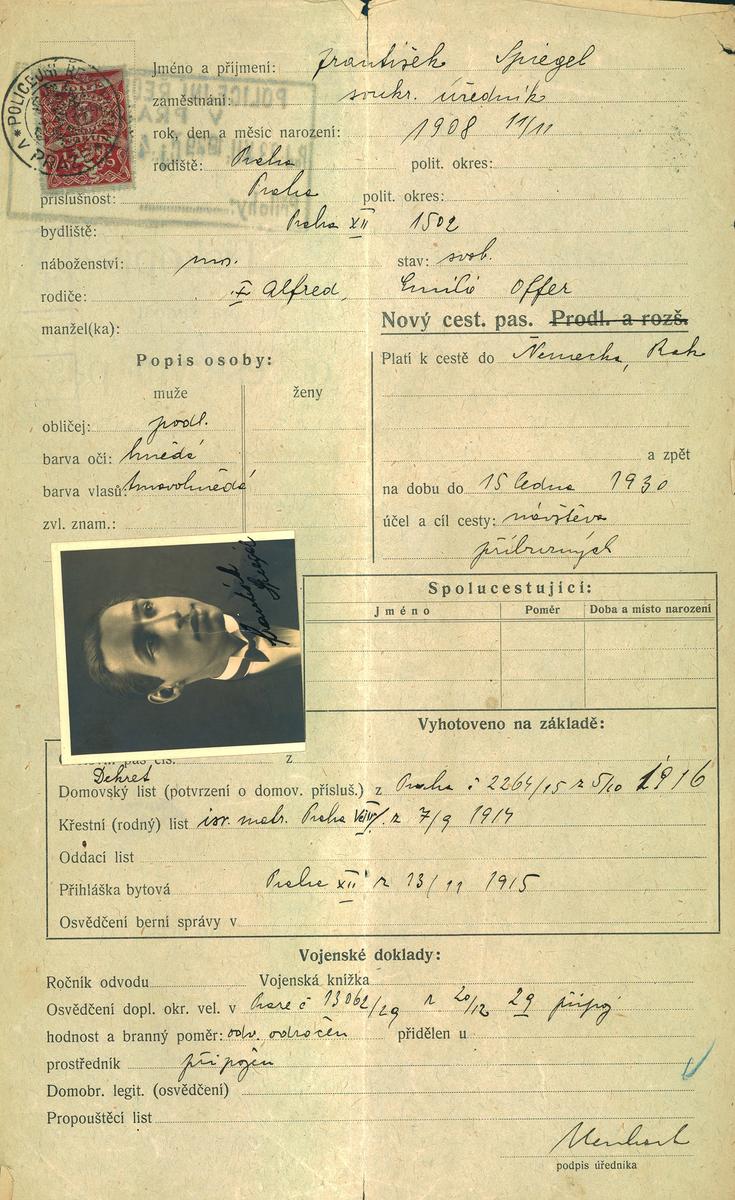 Jméno a příjmení: František Spiegel
zaměstnání: soukr. úředník
rok, den a měsíc narození: 1908 11/11
rodiště: Praha polit. okres:
příslušnost: Praha polit. okres:
bydliště: Praha XII 1502
náboženství: stav: svob.
rodiče: Alfred, Emilie Offer
manžel(ka):
Nový cest. pas. Prodl. a rozš.
Popis osoby:
muže ženy
obličej: podl.
barva očí: hnědá
barva vlasů: tmavohnědá
zvl. znam.:
Platí k cestě do Německa, Rak
a zpět
na dobu do 15 ledna 1930
účel a cíl cesty: návštěva
příbuzných
František Spiegel
Spolucestující:
Jméno Poměr Doba a místo narození
Vyhotoveno na základě:
pas čís. z
Dekret
Domovský list (potvrzení o domov. přísluš.) z Praha č 2264/15 z 5/10 1916
Křestní (rodný) list isr. matr. Praha z 7/9 1914
Oddací list
Přihláška bytová Praha XII z 13/11 1915
Osvědčení berní správy v
Vojenské doklady:
Ročník odvodu Vojenská knížka
Osvědčení dopl. okr. vel. v Praze č 13062/29 z 20/12 29 připoj
hodnost a branný poměr: odv. odročen přidělen u
prostředník připojen
Domobr. legit. (osvědčení)
Propouštěcí list
podpis úředníka